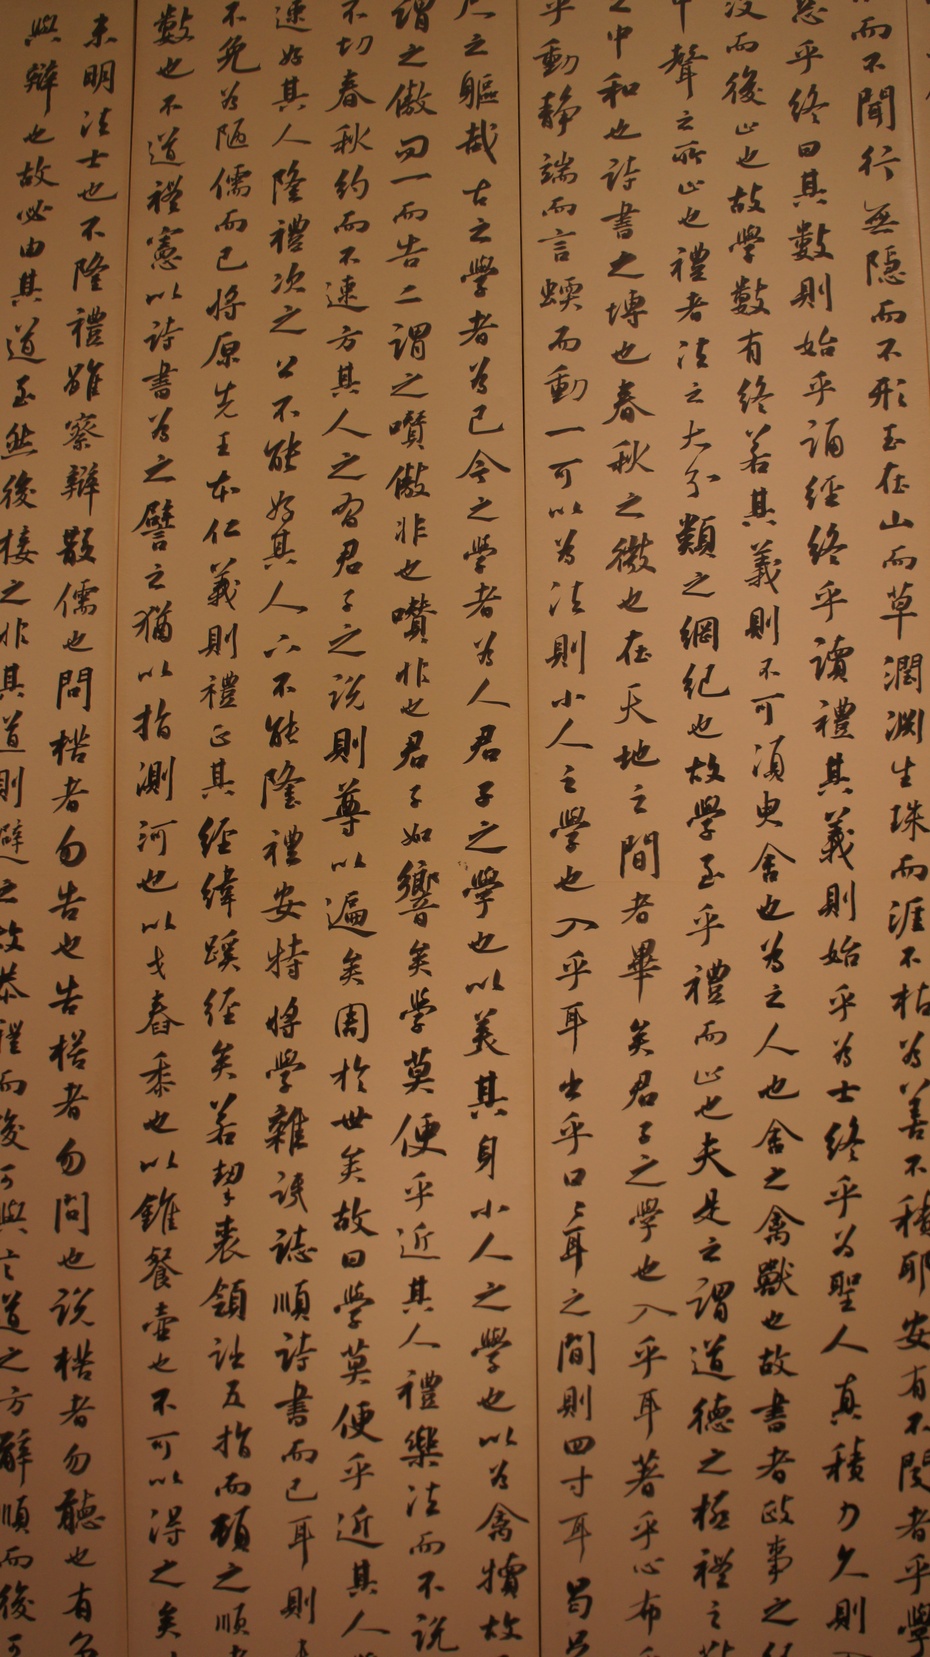 而不聞行無隱而不形玉在山而草潤淵生珠而涯不枯為善不積耶安有不聞者乎學
惡乎終曰其數則始乎誦經終乎讀禮其義則始乎為士終乎為聖人真積力久則
沒而後止也故學數有終若其義則不可須臾舍也為之人也舍之禽獸也故書者政事之
中聲之所止也禮者法之大分類之綱紀也故學至乎禮而止也夫是之謂道德之極禮之
之中和也詩書之博也春秋之微也在天地之間者畢矣君子之學也入乎耳著乎心布
乎動靜端而言蝡而動一可以為法則小人之學也入乎耳出乎口口耳之間則四寸耳曷
尺之軀哉古之學者為己今之學者為人君子之學也以美其身小人之學也以為禽犢故
謂之傲問一而告二謂之囋傲非也囋非也君子如響矣學莫便乎近其人禮樂法而不說
不切春秋約而不速方其人之習君子之說則尊以遍矣周於世矣故曰學莫便乎近其人
速好其人隆禮次之上不能好其人下不能隆禮安特將學雜識誌順詩書而已耳則
不免為陋儒而已將原先王本仁義則禮正其經緯蹊徑矣若挈裘領詘五指而頓之順
數也不道禮憲以詩書為之譬之猶以指測河也以戈舂黍也以錐餐壺也不可以得之矣
未明法士也不隆禮雖察辯散儒也問楛者勿告也告楛者勿問也說楛者勿聽也有
與辯也故必由其道至然後接之非其道則避之故恭禮而後可與言道之方辭順而後可